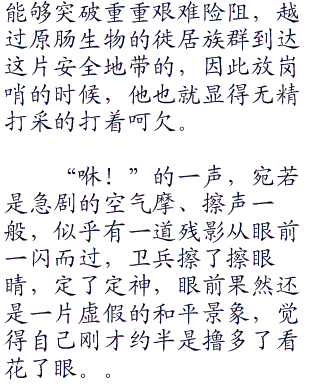 能够突破重重艰难险阻，越
过原肠生物的徙居族群到达
这片安全地带的，因此放岗
哨的时候，他也就显得无精
打采的打着呵欠。
“咻！”的一声，宛若
是急剧的空气摩、擦声一
般，似乎有一道残影从眼前
一闪而过，卫兵擦了擦眼
睛，定了定神，眼前果然还
是一片虚假的和平景象，觉
得自己刚才约半是撸多了看
花了眼。。